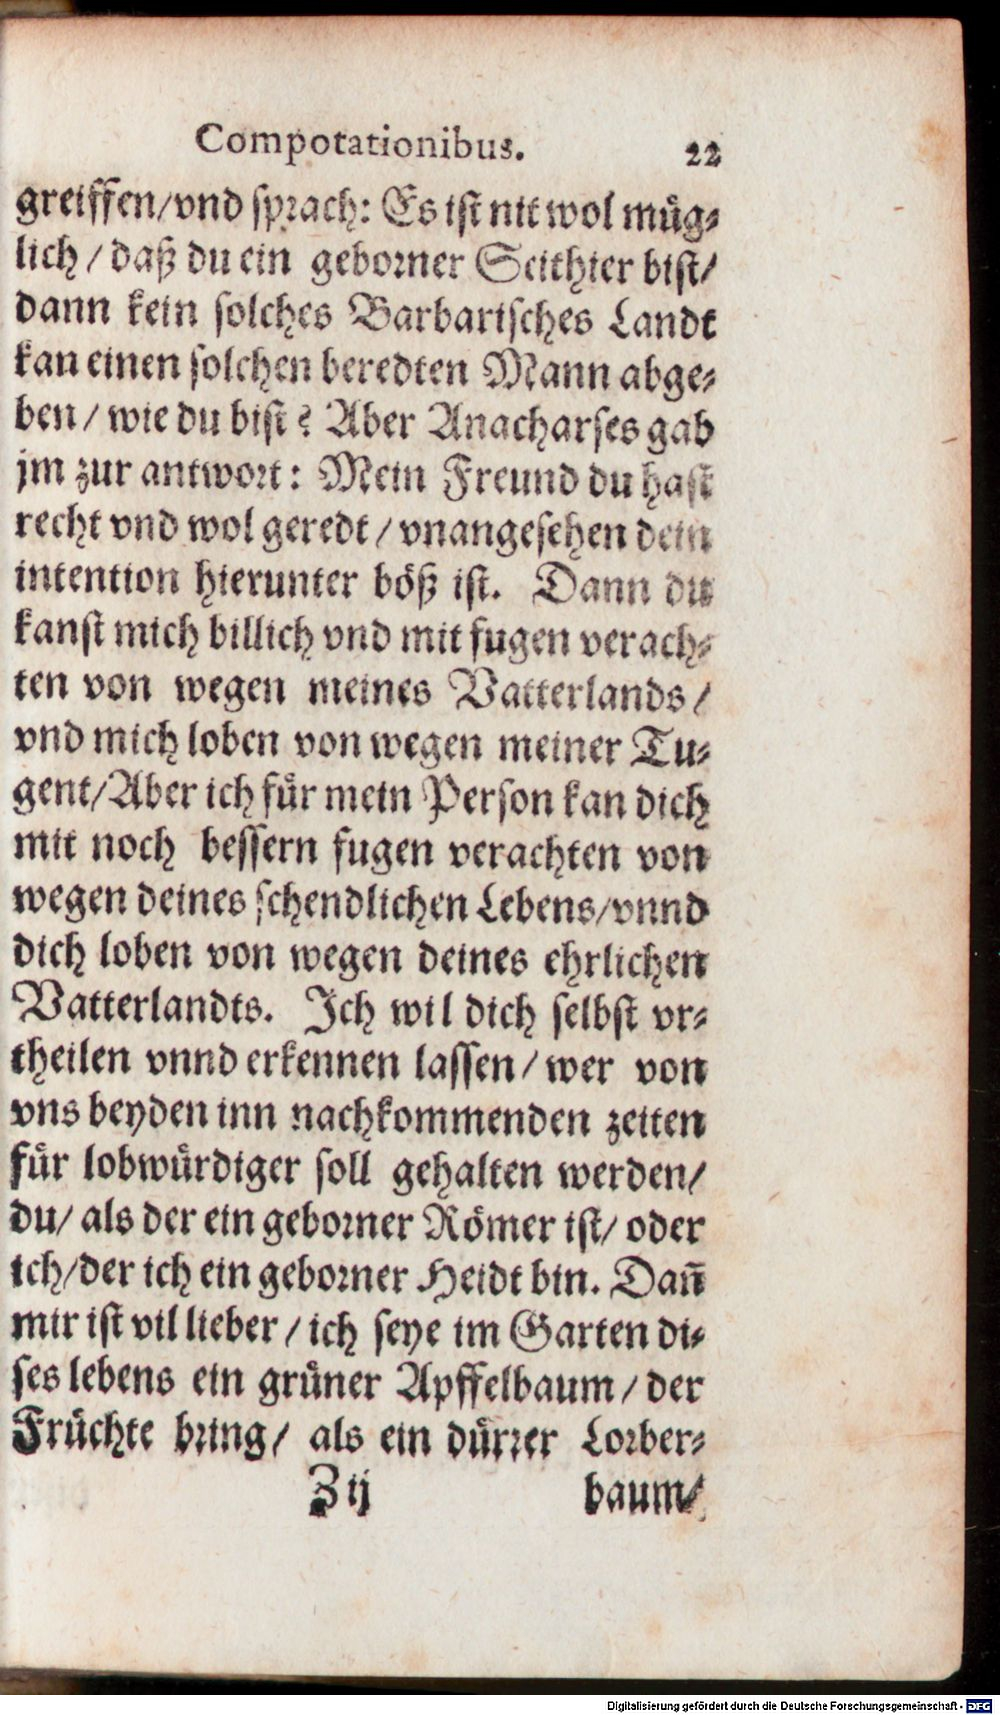 Compotationibus. 22
greiffen/vnd sprach: Es ist nit wol müg⸗
lich / daß du ein geborner Scithier bist/
dann kein solches Barbarisches Landt
kan einen solchen beredten Mann abge⸗
ben / wie du bist? Aber Anacharses gab
jm zur antwort: Mein Freund du hast
recht vnd wol geredt / vnangesehen dein
intention hierunter böß ist. Dann du
kanst mich billich vnd mit fugen verach⸗
ten von wegen meines Vatterlands /
vnd mich loben von wegen meiner Tu⸗
gent/Aber ich für mein Person kan dich
mit noch bessern fugen verachten von
wegen deines schendlichen Lebens/vnnd
dich loben von wegen deines ehrlichen
Vatterlandts. Ich wil dich selbst vr⸗
theilen vnnd erkennen lassen / wer von
vns beyden inn nachkommenden zeiten
für lobwürdiger soll gehalten werden/
du/ als der ein geborner Römer ist/ oder
ich/der ich ein geborner Heidt bin. Dañ
mir ist vil lieber / ich seye im Garten di⸗
ses lebens ein grüner Apffelbaum / der
Früchte bring/ als ein dürrer Lorber⸗
Z ij baum/
Digitalisierung gefördert durch die Deutsche Forschungsgemeinschaft - DFG